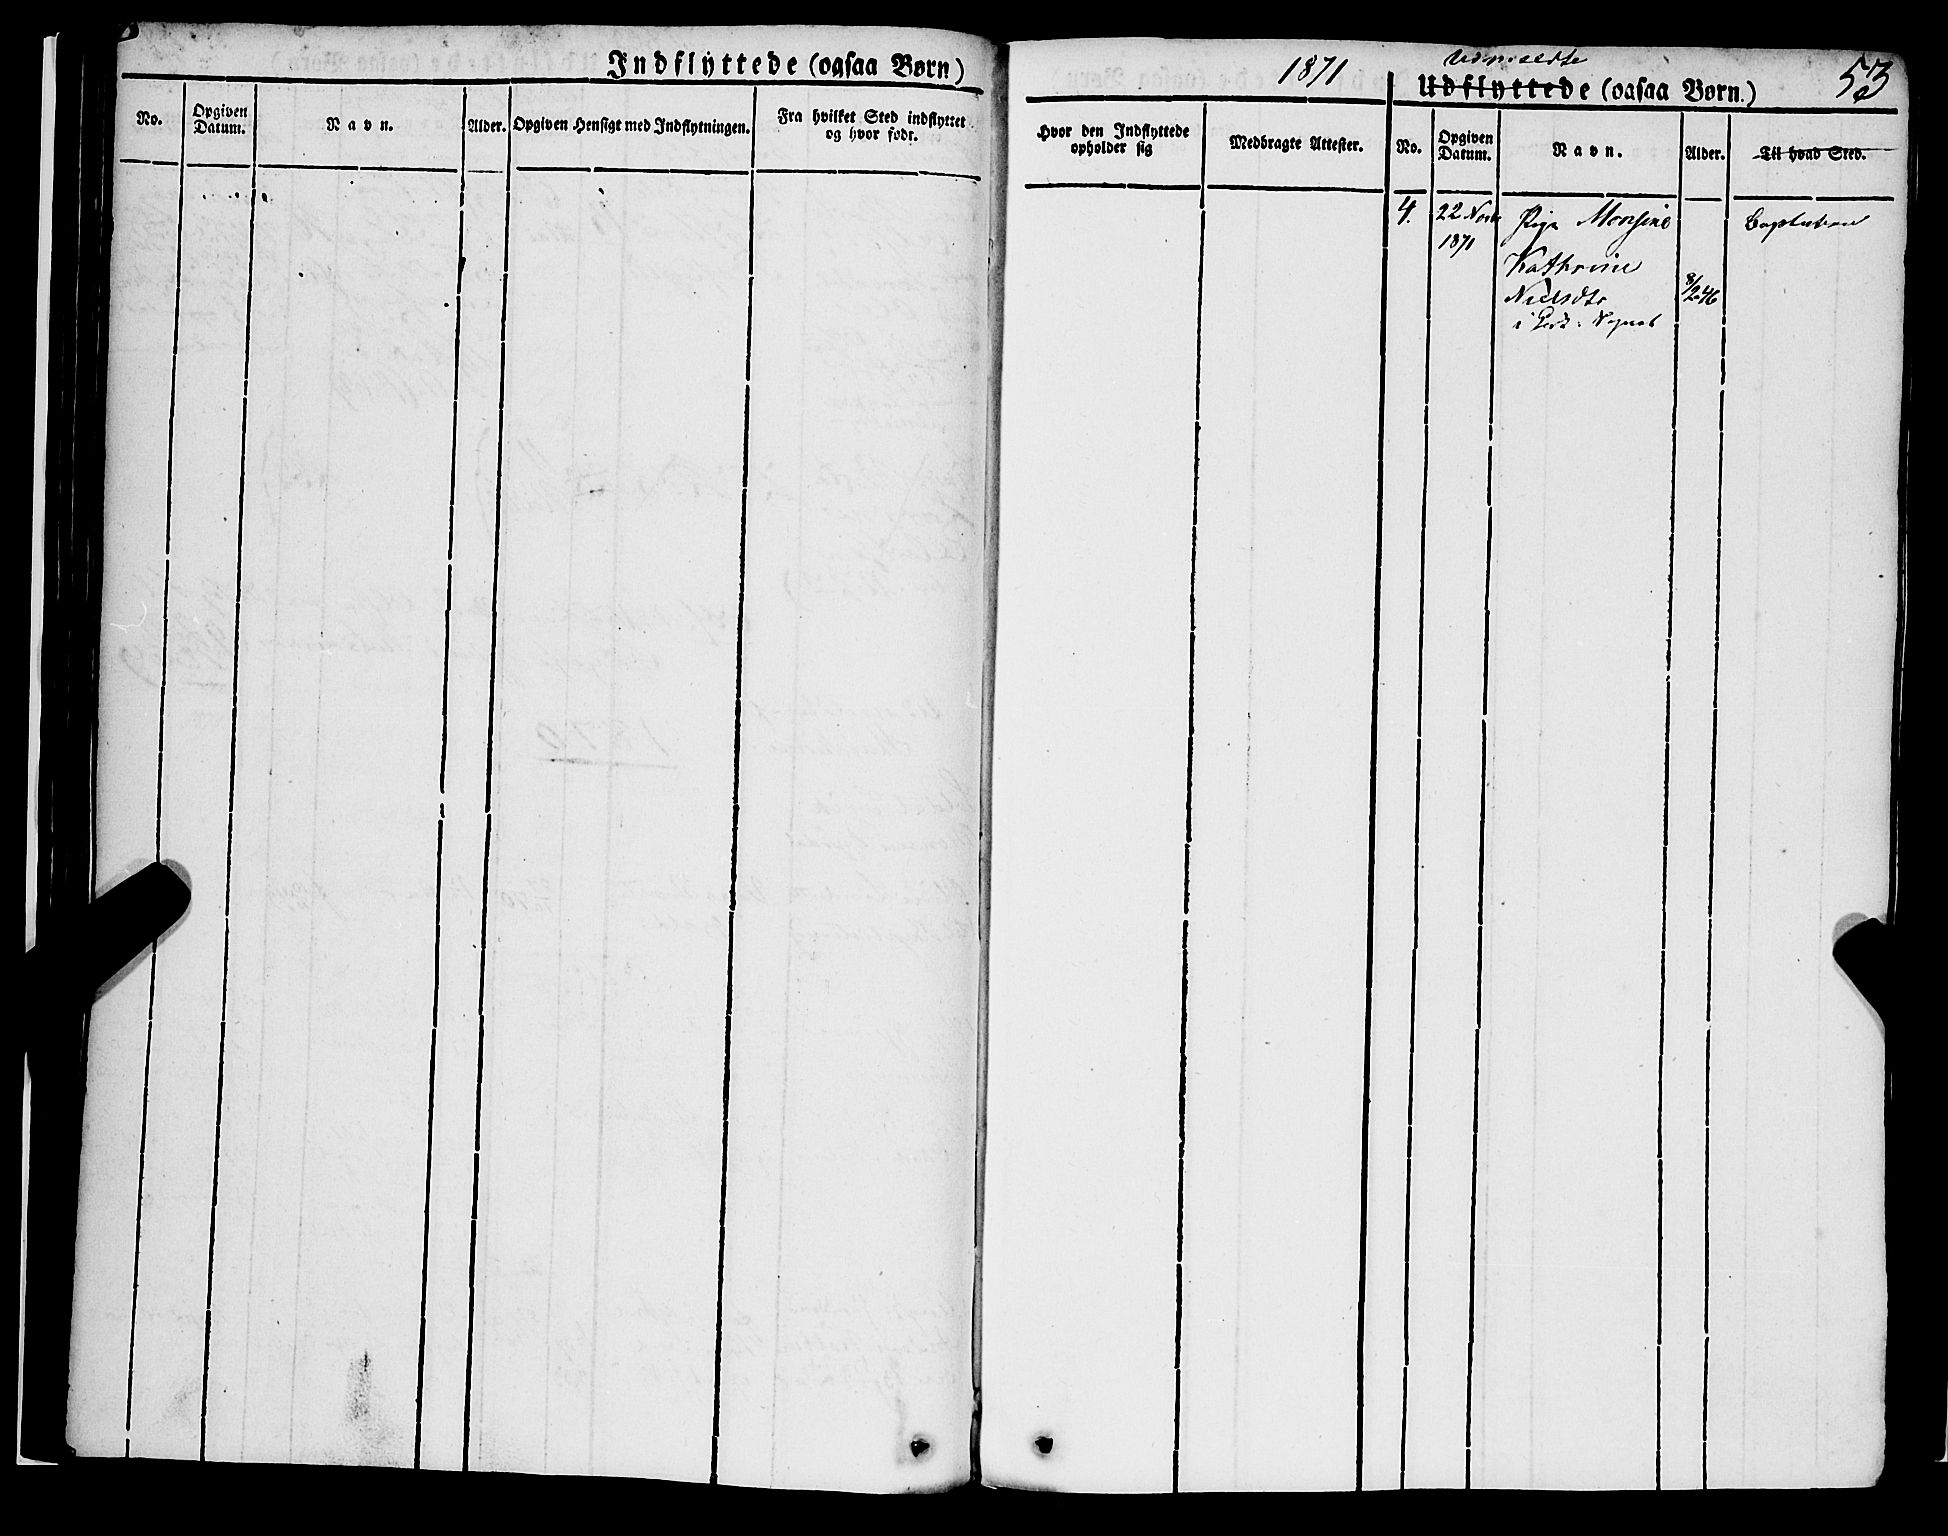 Indflyttede (ogsaa Børn)
No.
Opgiven
Datum.
Navn.
Alder.
Opgiven Hensigt med Indflytningen.
Fra hvilket Sted indflyttet
og hvor født.
1871
Udmeldte
Udflyttede (ogsaa Børn.)
53
Hvor den Indflyttede
opholder sig
Medbragte Attester.
No.
Opgiven
Datum.
Navn.
Alder.
Til hvad Sted.
4.
22 Novb
1871
Pige Monsine
Kathrine
Nielsdtr
8/2 46
Baptisterne